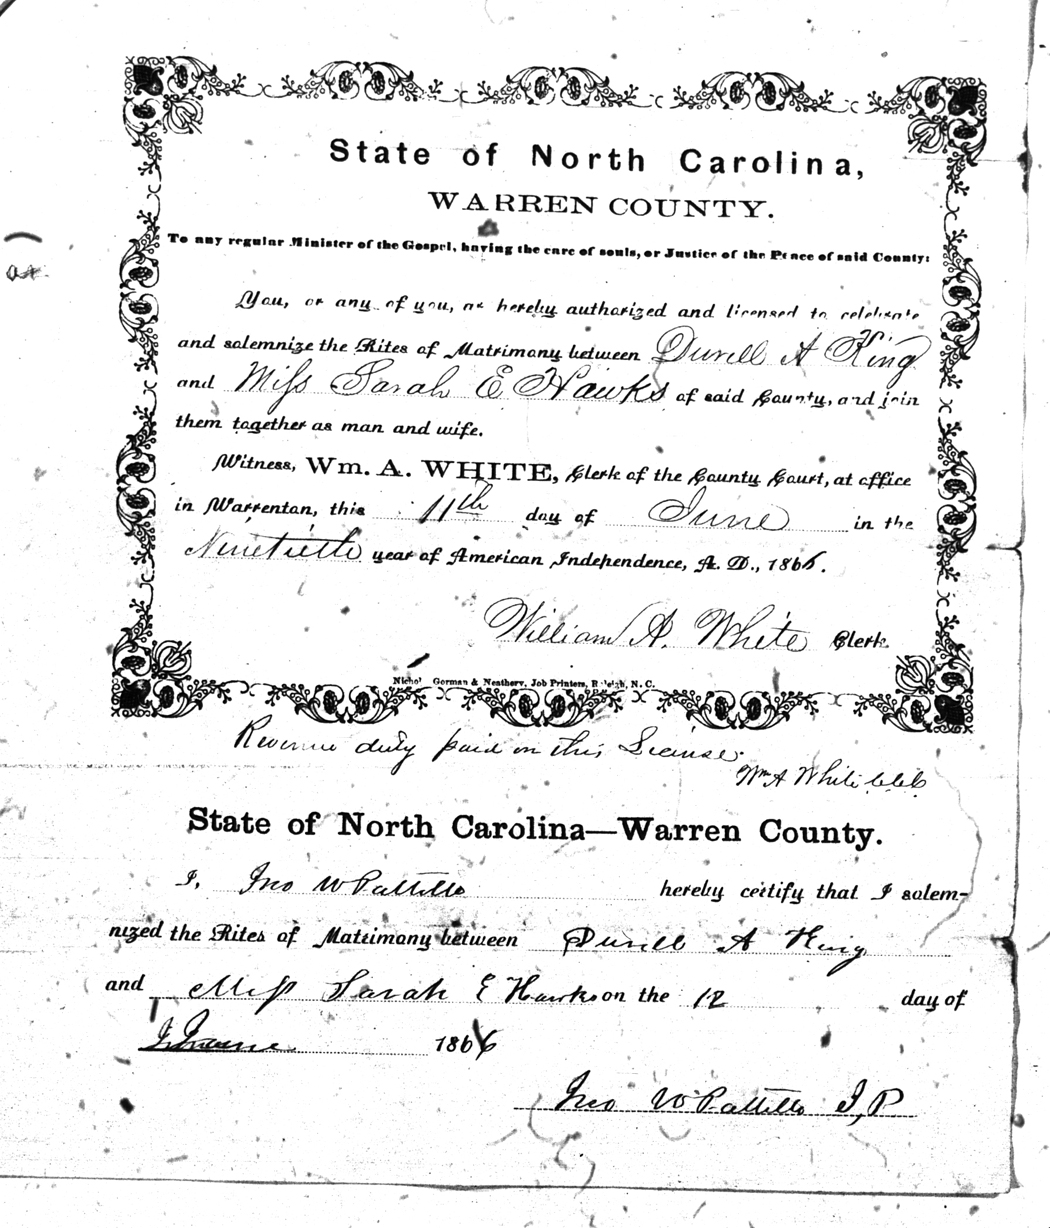 State of North Carolina,
WARREN COUNTY.
To any regular Minister of the Gospel, having the care of souls, or Justice of the Peace of said County:
You, or any of you, are hereby authorized and licensed to celebrate
and solemnize the Rites of Matrimony between Durell A King
and Miss Sarah E Hawks of said County, and join
them together as man and wife.
Witness, Wm. A. WHITE, Clerk of the County Court, at office
in Warrenton, this 11th day of June in the
Ninetieth year of American Independence, A. D., 1866.
William A. White Clerk
Gorman & Neathery, Job Printers, Raleigh, N. C.
Revenue duty paid on this License.
Wm A White
State of North Carolina—Warren County.
I, Jno W Pattillo hereby certify that I solem-
nized the Rites of Matrimony between Durell A King
and Miss Sarah E Hawks on the 12 day of
June 1866
Jno W Pattillo J,P